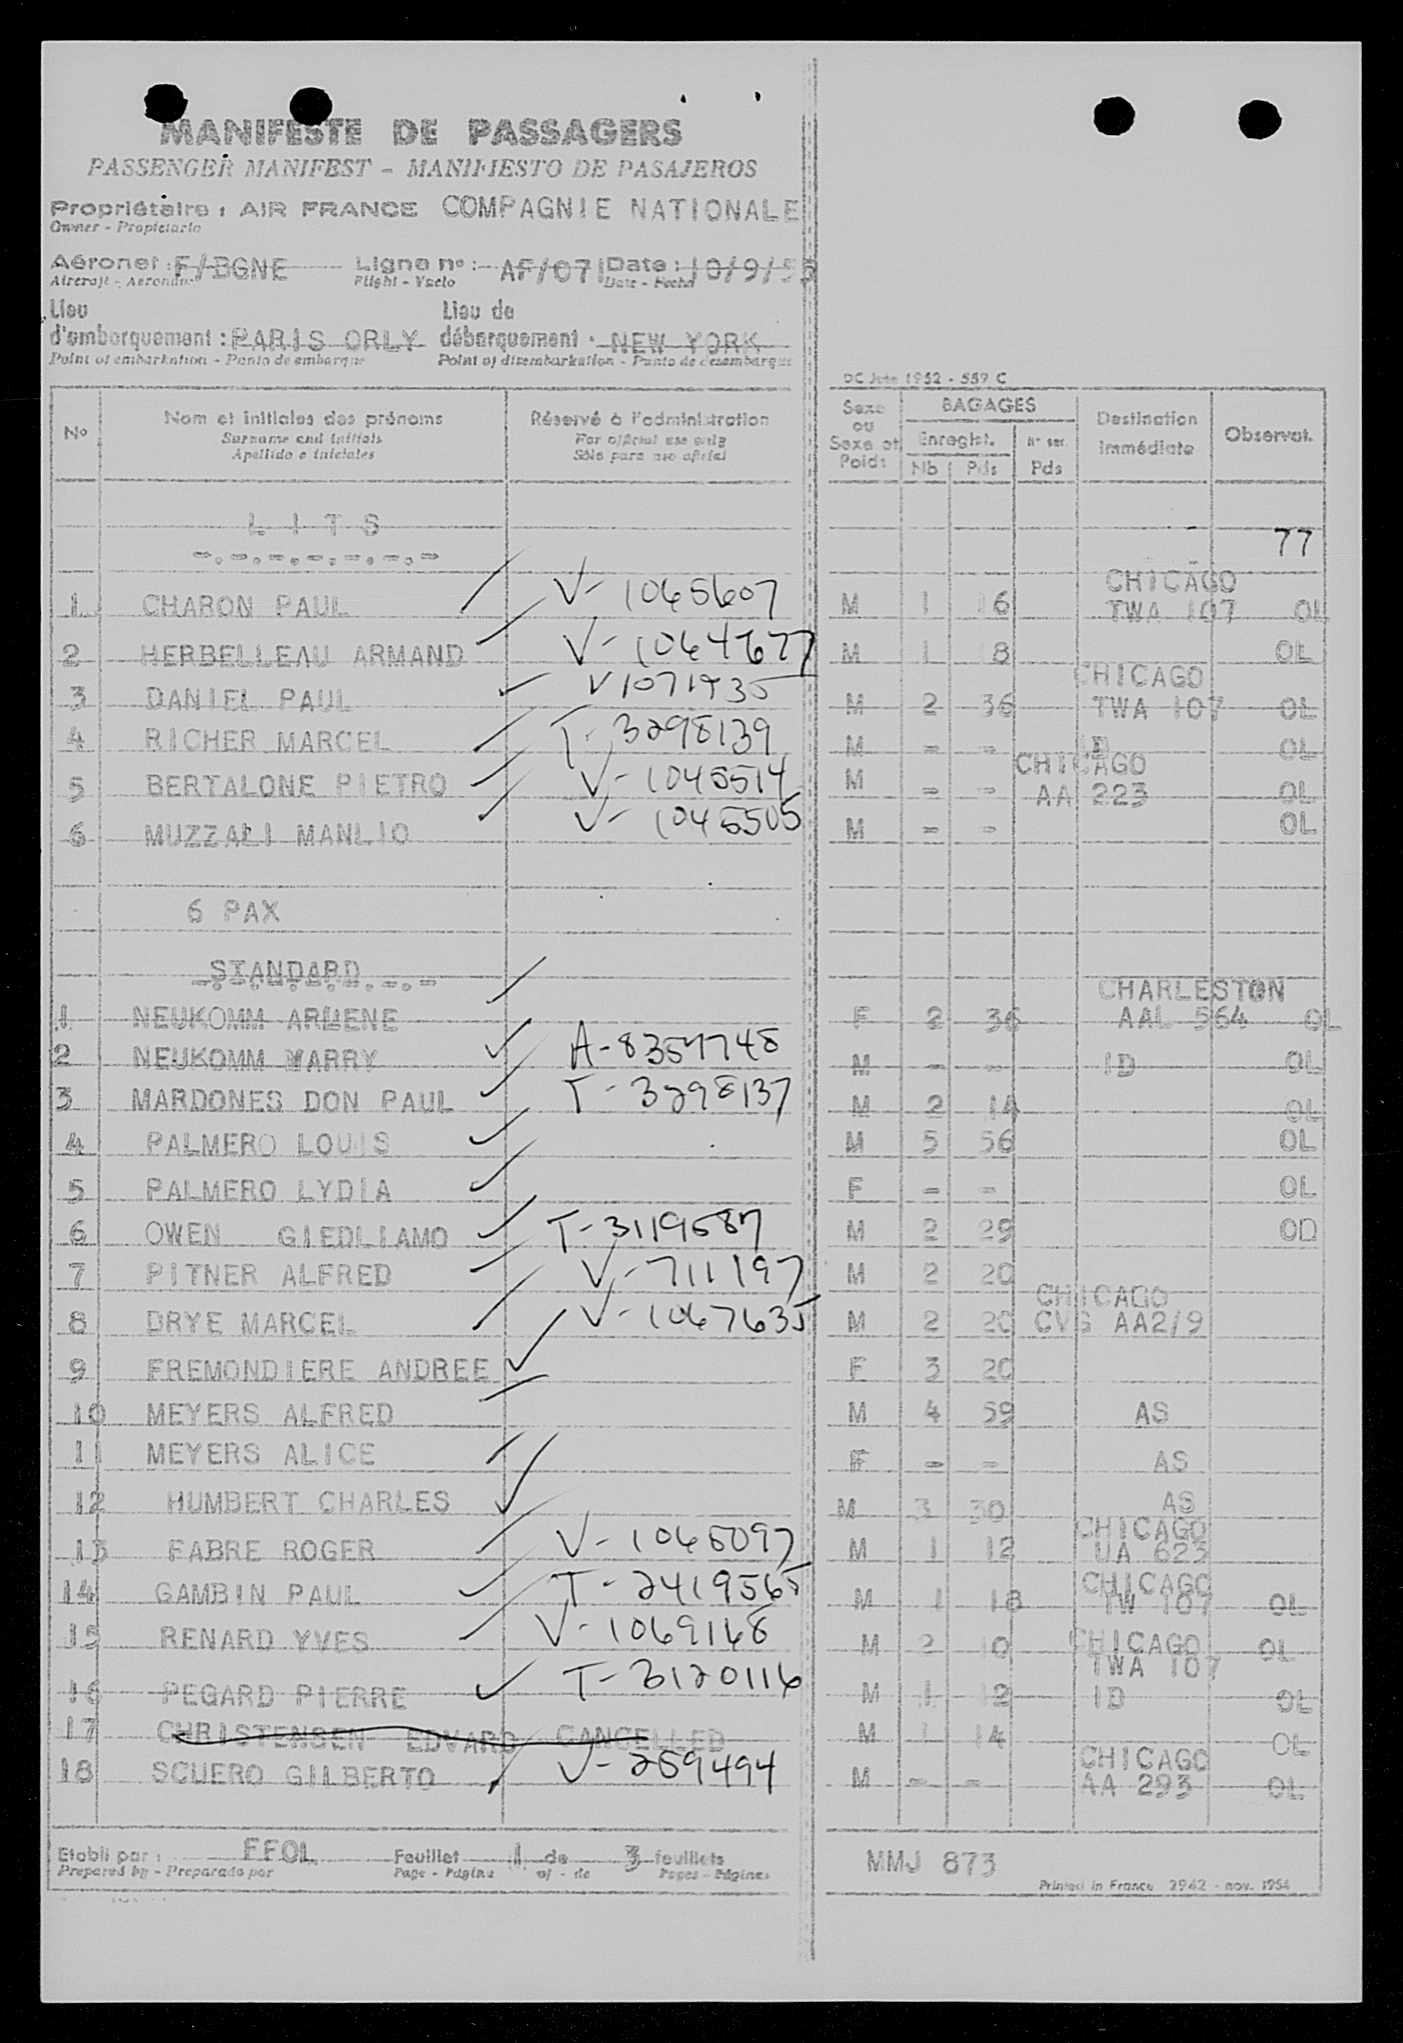 MANIFESTE DE PASSAGERS
PASSENGER MANIFEST - MANIFIESTO DE PASAJEROS
Propriétaire : AIR FRANCE COMPAGNIE NATIONALE
Owner - Propietario
Aéronef : F/BGNE Ligne no : AF/071 Date : 10/9/55
Aircraft - Aeronave Flight - Vuelo Date - Fecha
Lieu d'embarquement : PARIS ORLY Lieu de débarquement : NEW YORK
Point of embarkation - Punto de embarque Point of disembarkation - Punto de desembarque
DC Juin 1952 - 559 C
No Nom et initiales des prénoms Réservé à l'administration Sexe ou Sexe et Poids BAGAGES Destination immédiate Observat.
Surname and initials For official use only Enregist. Nb Pds Pds
Apellido e iniciales Sólo para uso oficial
LITS
77
1 CHARON PAUL V-1065607 M 1 16 CHICAGO TWA 107 OL
2 HERBELLEAU ARMAND V-1064677 M 1 18 OL
3 DANIEL PAUL V1071935 M 2 36 CHICAGO TWA 107 OL
4 RICHER MARCEL T-3298139 M - - ID OL
5 BERTALONE PIETRO V-1045514 M - - CHICAGO AA 223 OL
6 MUZZALI MANLIO V-1045505 M - - OL
6 PAX
STANDARD
1 NEUKOMM ARLENE F 2 36 CHARLESTON AAL 564 OL
2 NEUKOMM WARRY A-8357748 M - - ID OL
3 MARDONES DON PAUL T-3298137 M 2 14 OL
4 PALMERO LOUIS M 5 56 OL
5 PALMERO LYDIA F - - OL
6 OWEN GIEDLIAMO T-3119587 M 2 29 OD
7 PITNER ALFRED V-711197 M 2 20
8 DRYE MARCEL V-1067635 M 2 20 CHICAGO CVG AA2/9
9 FREMONDIERE ANDREE F 3 20
10 MEYERS ALFRED M 4 59 AS
11 MEYERS ALICE F - - AS
12 HUMBERT CHARLES M 3 30 AS
13 FABRE ROGER V-1065097 M 1 12 CHICAGO UA 623
14 GAMBIN PAUL T-2419565 M 1 18 CHICAGO TW 107 OL
15 RENARD YVES V-1069168 M 2 10 CHICAGO TWA 107 OL
16 PEGARD PIERRE T-3120116 M 1 12 ID OL
17 CHRISTENSEN EDVARD CANCELLED M 1 14 OL
18 SCUERO GILBERTO V-259494 M - - CHICAGO AA 293 OL
Etabli par : FFOL Feuillet 1 de 3 feuillets MMJ 873
Prepared by - Preparado por Page - Página of - de Pages - Páginas
Printed in France 2942 - nov. 1954